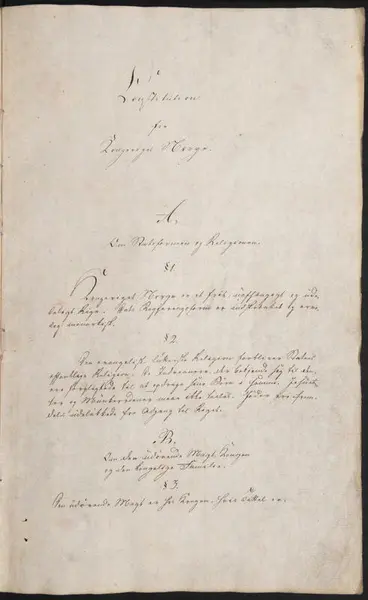 Constitution
for
Kongeriget Norge.
A.
Om Statsformen og Religionen.
§ 1.
Kongeriget Norge er et frit, uafhængigt og ude-
leligt Rige. Dets Regjeringsform er indskrænket og arve-
lig monarkisk.
§ 2.
Den evangelisk lutterske Religion forbliver Statens
offentlige Religion. De Indvaanere, der bekjende sig til den,
ere forpligtede til at opdrage sine Børn i samme. Jesuit-
ter og Munkeordener maae ikke taales. Jøder ere frem-
deles udelukkede fra Adgang til Riget.
B.
Om den udøvende Magt, Kongen
og den kongelige Familie.
§ 3.
Den udøvende Magt er hos Kongen, hvis Titel er: